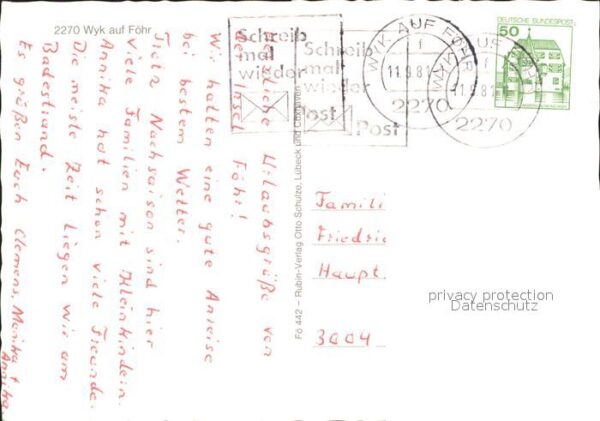 2270 Wyk auf Föhr
Schreib
mal
wieder
Post
Schreib
mal
wieder
Post
WYK AUF FÖHR
11.9.81
2270
WYK AUF FÖHR
11.9.81
2270
DEUTSCHE BUNDESPOST
50
Urlaubsgrüße von
der Insel Föhr!
Wir hatten eine gute Anreise
bei bestem Wetter.
Trotz Nachsaison sind hier
viele Familien mit Kleinkindern.
Annika hat schon viele Freunde.
Die meiste Zeit liegen wir am
Badestrand.
Es grüßen Euch Clemens, Monika +
Annika
Fö 442 – Rubin-Verlag Otto Schulze, Lübeck und Cuxhaven
Famili
Friedric
Haupt
3004
privacy protection
Datenschutz